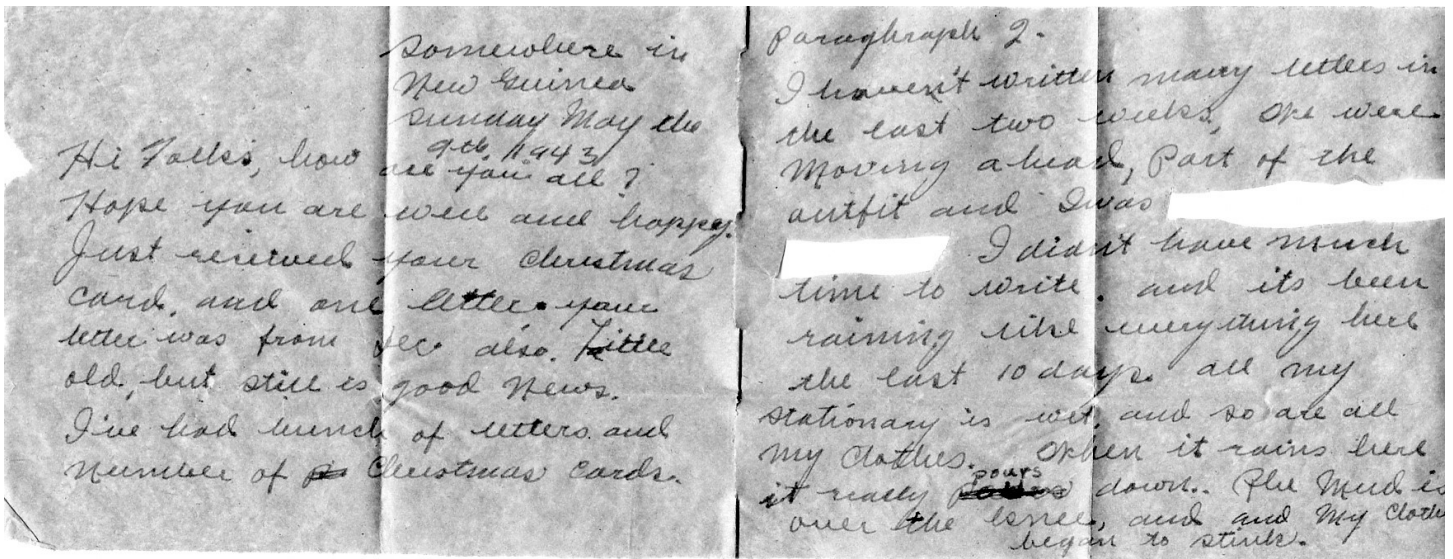 Somewhere in
New Guinea
Sunday May the
9th, 1943
Hi Folks, how are you all?
Hope you are well and happy.
Just recieved your Christmas
card, and one letter your
letter was from Dec also. Little
old, but still is good News.
I've had bunch of letters and
number of Christmas cards.
Paraghraph 2.
I haven't written many letters in
the last two weeks, We were
moving ahead, Part of the
outfit and I was
I didn't have much
time to write. and its been
raining like everything here
the last 10 days. all my
stationary is wet, and so are all
my clothes. When it rains here
it really pours down. The Mud is
over the knee, and and My Clothe
began to stink.